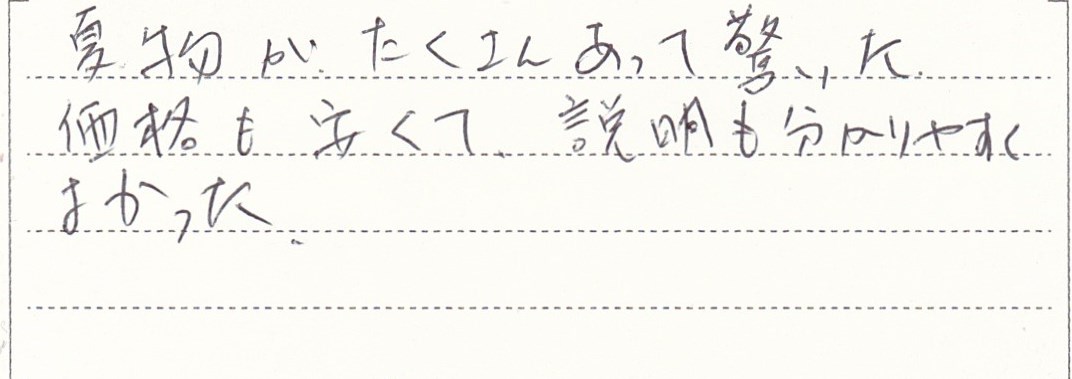 夏物がたくさんあって驚いた.
価格も安くて、説明も分かりやすく
よかった.